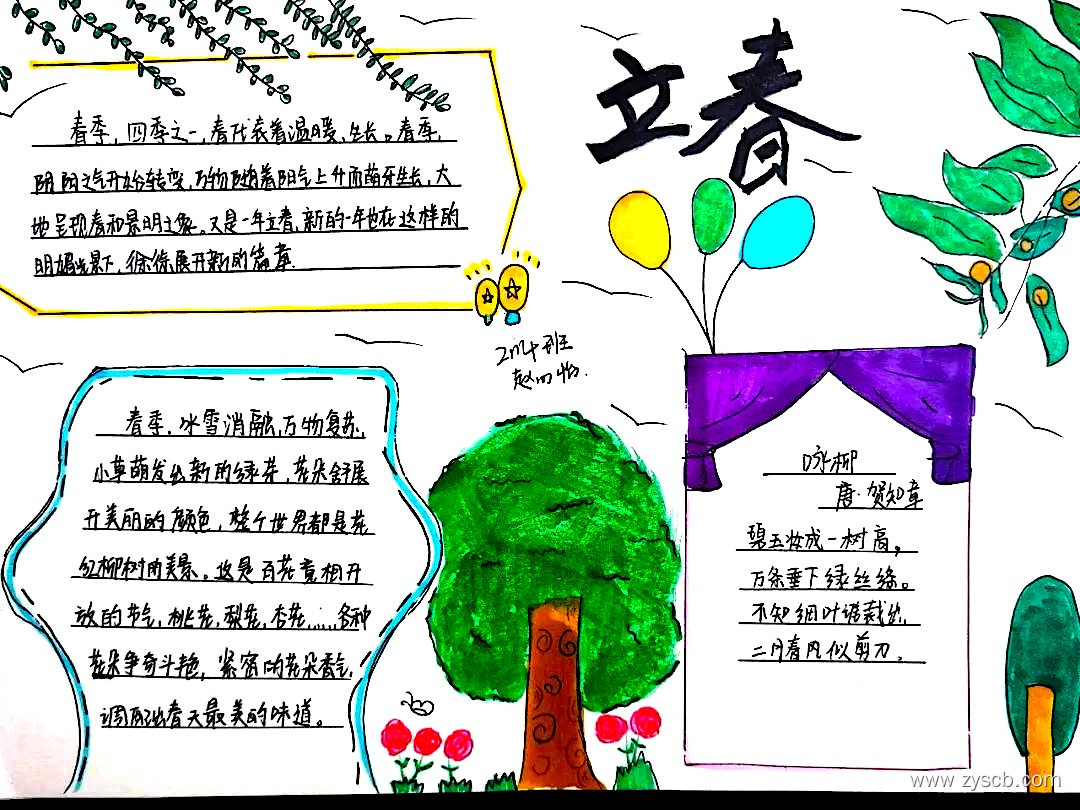 立春
春季，四季之一，春代表着温暖、生长。春季，
阴阳之气开始转变，万物随着阳气上升而萌牙生长，大
地呈现春和景明之象。又是一年立春，新的一年也在这样的
明媚光景下，徐徐展开新的篇章.
2114班
春季，冰雪消融，万物复苏，
小草萌发出新的绿芽，花朵舒展
开美丽的颜色，整个世界都是花
红柳树的美景。这是百花竟相开
放的节气，桃花，梨花，杏花……各种
花朵争奇斗艳，紧密的花朵香气，
调配出春天最美的味道。
咏柳
唐·贺知章
碧玉妆成一树高，
万条垂下绿丝绦。
不知细叶谁裁出，
二月春风似剪刀。
www.zyscb.com